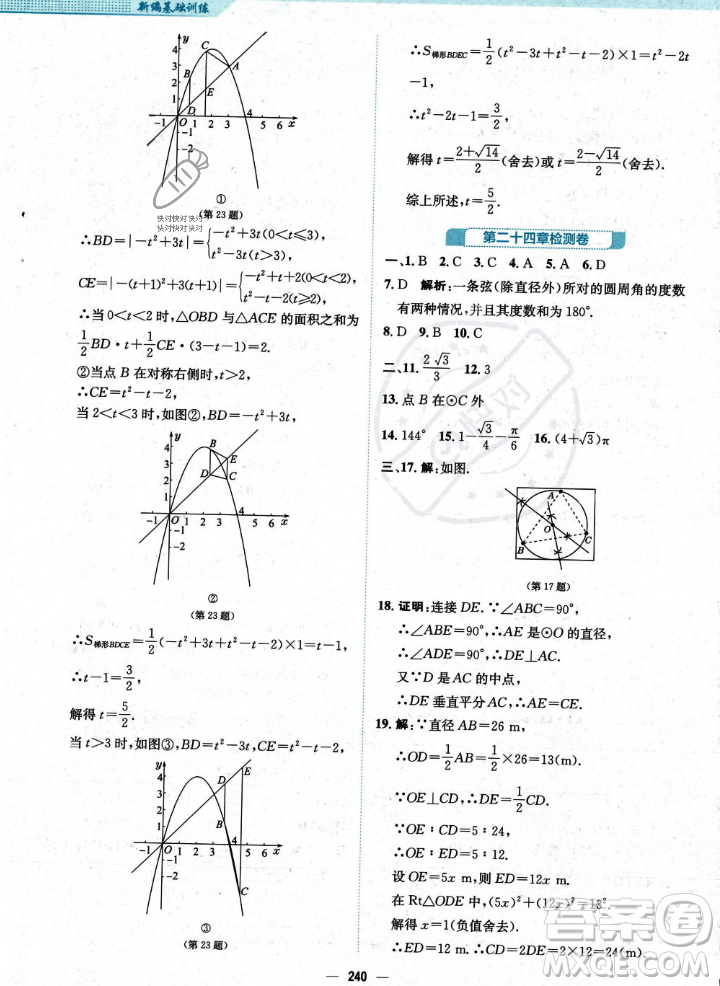 新编基础训练
①
(第 23 题)
快对快对快对
快对快对快对
∴BD=|-t²+3t|={-t²+3t(0<t≤3)
t²-3t(t>3),
CE=|-(t+1)²+3(t+1)|=
当 0<t<2 时,△OBD 与△ACE 的面积之和为
1/2 BD·t+1/2 CE·(3-t-1)=2.
②当点 B 在对称右侧时,t>2,
∴CE=t²-t-2,
当 2<t<3 时,如图②,BD=-t²+3t,
②
(第 23 题)
∴S梯形BDCE=1/2(-t²+3t+t²-t-2)×1=t-1,
∴t-1=3/2,
解得 t=5/2.
当 t>3 时,如图③,BD=t²-3t,CE=t²-t-2,
③
(第 23 题)
∴S梯形BDEC=1/2(t²-3t+t²-t-2)×1=t²-2t
-1,
∴t²-2t-1=3/2,
解得 t=(2+√14)/2(舍去)或 t=(2-√14)/2(舍去).
综上所述,t=5/2.
第二十四章检测卷
一、1. B 2. C 3. C 4. A 5. A 6. D
7. D 解析:一条弦(除直径外)所对的圆周角的度数
有两种情况,并且其度数和为 180°.
8. D 9. B 10. C
二、11. 2√3/3 12. 3
13. 点 B 在⊙C 外
14. 144° 15. 1-√3/4-π/6 16. (4+√3)π
三、17. 解:如图.
(第 17 题)
18. 证明:连接 DE. ∵∠ABC=90°,
∴∠ABE=90°,∴AE 是⊙O 的直径,
∴∠ADE=90°,∴DE⊥AC.
又∵D 是 AC 的中点,
∴DE 垂直平分 AC,∴CE=AE.
19. 解:∵直径 AB=26 m,
∴OD=1/2 AB=1/2×26=13(m).
∵OE⊥CD,∴DE=1/2 CD.
∵OE∶CD=5∶24,
∴OE∶ED=5∶12,
设 OE=5x m,则 ED=12x m,
在 Rt△ODE 中,(5x)²+(12x)²=13²,
解得 x=1(负值舍去),
∴ED=12 m,∴CD=2DE=2×12=24(m).
答案卷
240